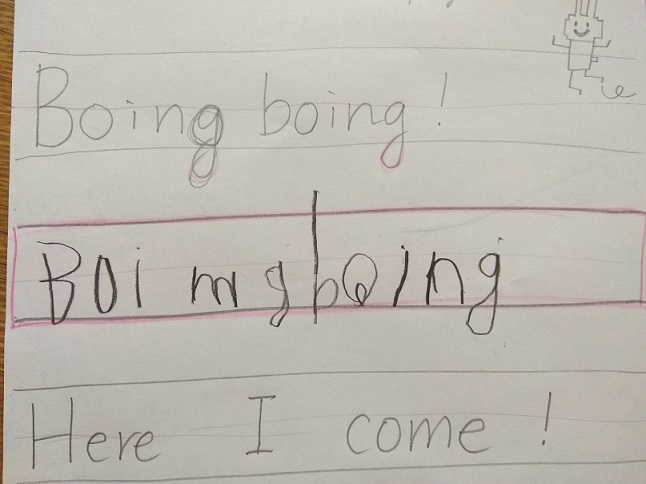 Boing boing!
Boimg boing
Here I come!